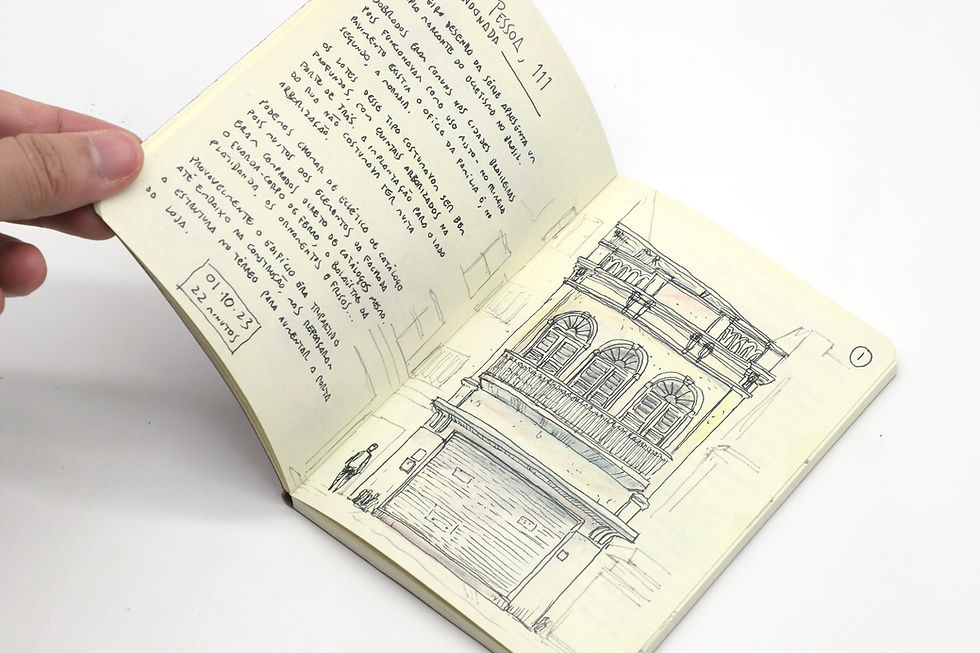 PESSOA, 111
DONADA
EIRO DESENHO DA SÉRIE APRESENTA UM
PLO MARCANTE DO ECLETISMO NO BRASIL.
SOBRADOS ERAM COMUNS NAS CIDADES BRASILEIRAS
POIS FUNCIONAVAM COMO USO MISTO - NO PRIMEIRO
PAVIMENTO EXISTIA O OFÍCIO DA FAMÍLIA E, NO
SEGUNDO, A MORADIA.
OS LOTES DESSE TIPO COSTUMAVAM SER BEM
PROFUNDOS, COM QUINTAIS ARBORIZADOS NA
PARTE DE TRÁS. A IMPLANTAÇÃO PARA O LADO
DA RUA NÃO COSTUMAVA TER MUITA
ARBORIZAÇÃO.
PODEMOS CHAMAR DE ECLÉTICO DE CATÁLOGO
POIS MUITOS DOS ELEMENTOS DA FACHADA
ERAM COMPRADOS DIRETO DE CATÁLOGOS MESMO:
O GUARDA-CORPO DE FERRO, O DA
PLATIBANDA, OS ORNAMENTOS E FRISOS...
PROVAVELMENTE O EDIFÍCIO ERA TRIPARTIDO
ATÉ EMBAIXO NA CONSTRUÇÃO, MAS REFORÇARAM
A ESTRUTURA NO TÉRREO PARA AUMENTAR A PORTA
DA LOJA.
01.10.23
22 MINUTOS
1